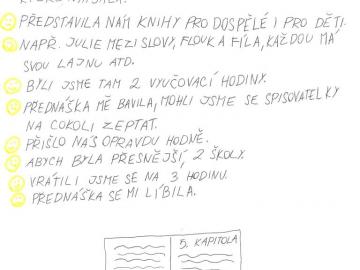 PŘEDSTAVILA NÁM KNIHY PRO DOSPĚLÉ I PRO DĚTI.
NAPŘ. JULIE MEZI SLOVY, FLOUK A FÍLA, KAŽDOU MÁ
SVOU LAJNU ATD.
BYLI JSME TAM 2 VYUČOVACÍ HODINY.
PŘEDNÁŠKA MĚ BAVILA, MOHLI JSME SE SPISOVATELKY
NA COKOLI ZEPTAT.
PŘIŠLO NÁS OPRAVDU HODNĚ.
ABYCH BYLA PŘESNĚJŠÍ, 2 ŠKOLY.
VRÁTILI JSME SE NA 3 HODINU.
PŘEDNÁŠKA SE MI LÍBILA.
5. KAPITOLA